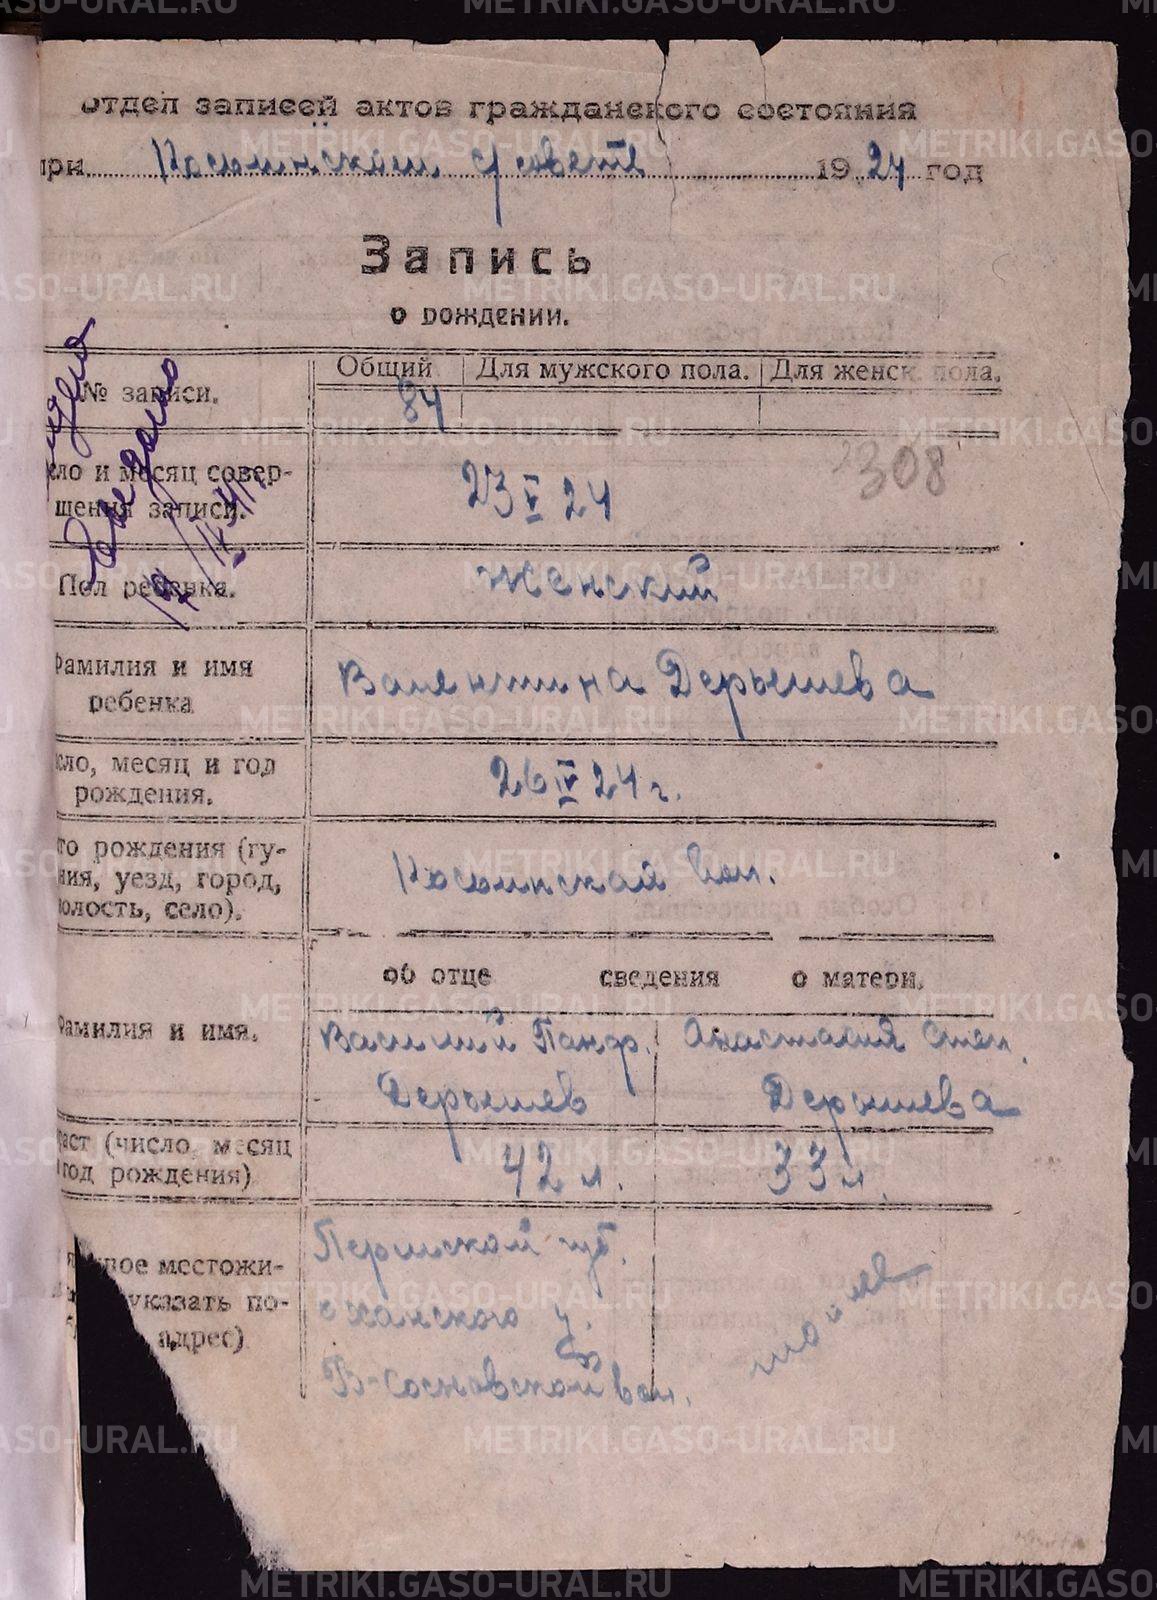 отдел записей актов гражданского состояния
при Косьинском с/совете 1924 год
Запись
о рождении.
№ записи.
Общий
Для мужского пола.
Для женск. пола.
84
сло и месяц совер-
шения записи.
23 V 24
2308
17/IX-54 г.
Пол ребенка.
Женский
Фамилия и имя
ребенка
Валентина Дерышева
исло, месяц и год
рождения.
26 IV 24 г.
то рождения (гу-
ния, уезд, город,
волость, село).
Косьинской вол.
об отце сведения о матери.
Фамилия и имя.
Василий Панф.
Дерышев
Анастасия Степ.
Дерышева
раст (число, месяц
год рождения)
42 л.
33 л.
нное местожи-
указать по-
адрес)
Пермской губ.
Оханского у.
В-Сосновской вол.
METRIKI.GASO-URAL.RU